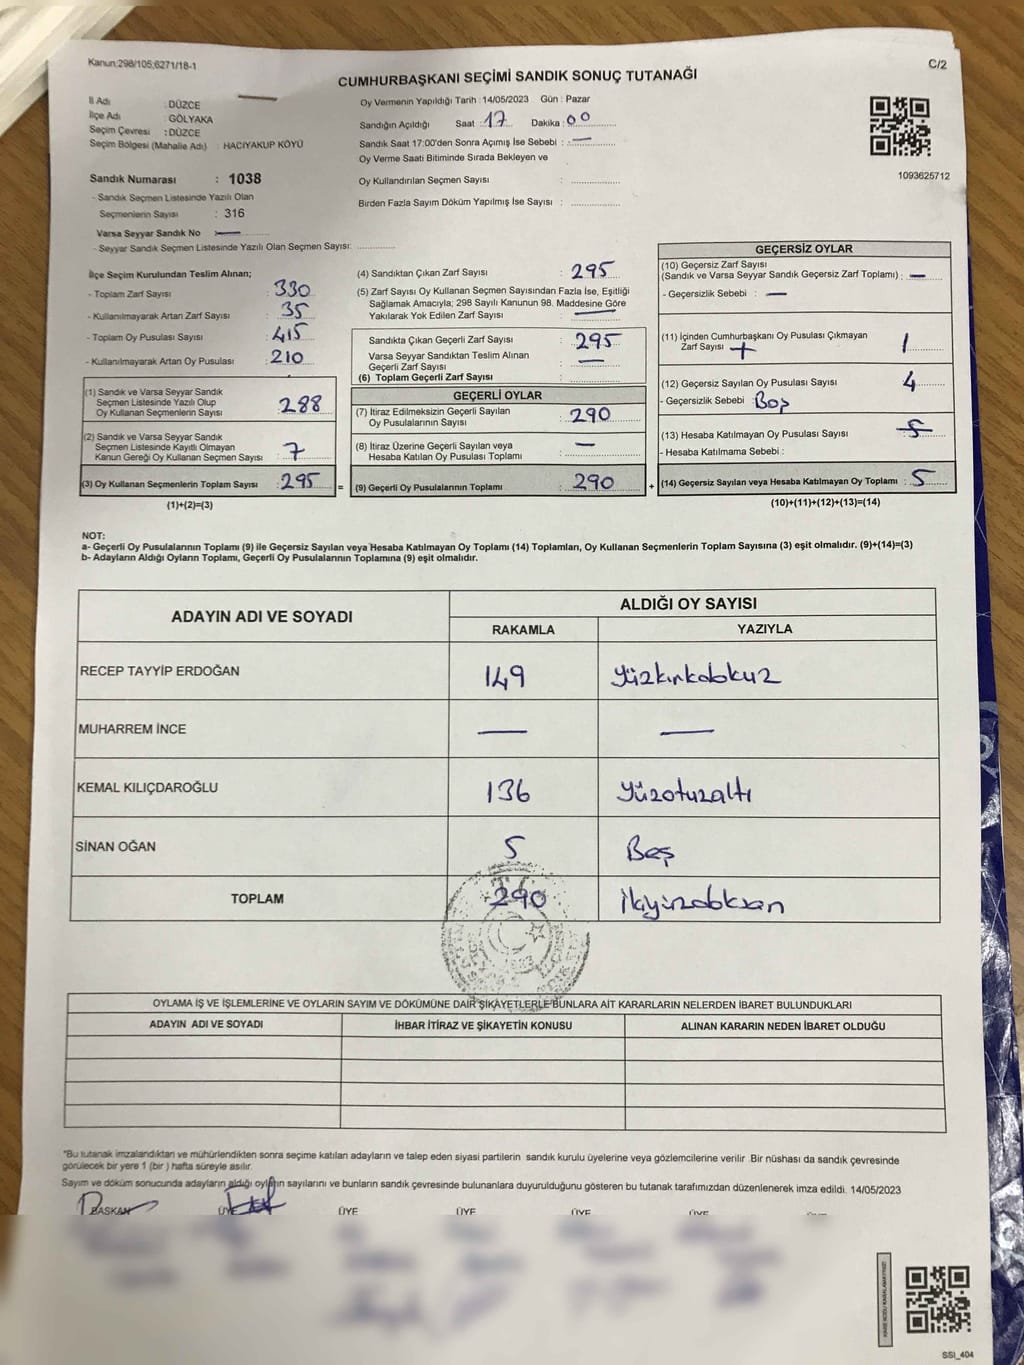 Kanun;298/105;6271/18-1
C/2
CUMHURBAŞKANI SEÇİMİ SANDIK SONUÇ TUTANAĞI
İl Adı : DÜZCE
İlçe Adı : GÖLYAKA
Seçim Çevresi : DÜZCE
Seçim Bölgesi (Mahalle Adı) : HACIYAKUP KÖYÜ
Sandık Numarası : 1038
- Sandık Seçmen Listesinde Yazılı Olan
Seçmenlerin Sayısı : 316
Varsa Seyyar Sandık No : —
- Seyyar Sandık Seçmen Listesinde Yazılı Olan Seçmen Sayısı: ............
Oy Vermenin Yapıldığı Tarih :14/05/2023 Gün : Pazar
Sandığın Açıldığı Saat : 17 Dakika : 00
Sandık Saat 17:00'den Sonra Açımış İse Sebebi : —
Oy Verme Saati Bitiminde Sırada Bekleyen ve
Oy Kullandırılan Seçmen Sayısı : ............
Birden Fazla Sayım Döküm Yapılmış İse Sayısı : ............
1093625712
İlçe Seçim Kurulundan Teslim Alınan;
- Toplam Zarf Sayısı : 330
- Kullanılmayarak Artan Zarf Sayısı : 35
- Toplam Oy Pusulası Sayısı : 415
- Kullanılmayarak Artan Oy Pusulası : 210
(1) Sandık ve Varsa Seyyar Sandık
Seçmen Listesinde Yazılı Olup
Oy Kullanan Seçmenlerin Sayısı : 288
(2) Sandık ve Varsa Seyyar Sandık
Seçmen Listesinde Kayıtlı Olmayan
Kanun Gereği Oy Kullanan Seçmen Sayısı : 7
(3) Oy Kullanan Seçmenlerin Toplam Sayısı : 295
(1)+(2)=(3)
(4) Sandıktan Çıkan Zarf Sayısı : 295
(5) Zarf Sayısı Oy Kullanan Seçmen Sayısından Fazla İse, Eşitliği
Sağlamak Amacıyla; 298 Sayılı Kanunun 98. Maddesine Göre
Yakılarak Yok Edilen Zarf Sayısı : —
Sandıkta Çıkan Geçerli Zarf Sayısı : 295
Varsa Seyyar Sandıktan Teslim Alınan
Geçerli Zarf Sayısı : —
(6) Toplam Geçerli Zarf Sayısı : ............
GEÇERLİ OYLAR
(7) İtiraz Edilmeksizin Geçerli Sayılan
Oy Pusulalarının Sayısı : 290
(8) İtiraz Üzerine Geçerli Sayılan veya
Hesaba Katılan Oy Pusulası Toplamı : —
= (9) Geçerli Oy Pusulalarının Toplamı : 290
GEÇERSİZ OYLAR
(10) Geçersiz Zarf Sayısı
(Sandık ve Varsa Seyyar Sandık Geçersiz Zarf Toplamı) : —
- Geçersizlik Sebebi : —
(11) İçinden Cumhurbaşkanı Oy Pusulası Çıkmayan
Zarf Sayısı : 1
(12) Geçersiz Sayılan Oy Pusulası Sayısı : 4
- Geçersizlik Sebebi : Boş
(13) Hesaba Katılmayan Oy Pusulası Sayısı : 5
- Hesaba Katılmama Sebebi :
+ (14) Geçersiz Sayılan veya Hesaba Katılmayan Oy Toplamı : 5
(10)+(11)+(12)+(13)=(14)
NOT:
a- Geçerli Oy Pusulalarının Toplamı (9) ile Geçersiz Sayılan veya Hesaba Katılmayan Oy Toplamı (14) Toplamları, Oy Kullanan Seçmenlerin Toplam Sayısına (3) eşit olmalıdır. (9)+(14)=(3)
b- Adayların Aldığı Oyların Toplamı, Geçerli Oy Pusulalarının Toplamına (9) eşit olmalıdır.
ADAYIN ADI VE SOYADI ALDIĞI OY SAYISI
RAKAMLA YAZIYLA
RECEP TAYYİP ERDOĞAN 149 Yüzkırkdokuz
MUHARREM İNCE — —
KEMAL KILIÇDAROĞLU 136 Yüzotuzaltı
SİNAN OĞAN 5 Beş
TOPLAM 290 İkiyüzdoksan
OYLAMA İŞ VE İŞLEMLERİNE VE OYLARIN SAYIM VE DÖKÜMÜNE DAİR ŞİKAYETLERLE BUNLARA AİT KARARLARIN NELERDEN İBARET BULUNDUKLARI
ADAYIN ADI VE SOYADI İHBAR İTİRAZ VE ŞİKAYETİN KONUSU ALINAN KARARIN NEDEN İBARET OLDUĞU
"Bu tutanak imzalandıktan ve mühürlendikten sonra seçime katılan adayların ve talep eden siyasi partilerin sandık kurulu üyelerine veya gözlemcilerine verilir .Bir nüshası da sandık çevresinde
görülecek bir yere 1 (bir ) hafta süreyle asılır.
Sayım ve döküm sonucunda adayların aldığı oyların sayılarını ve bunların sandık çevresinde bulunanlara duyurulduğunu gösteren bu tutanak tarafımızdan düzenlenerek imza edildi. 14/05/2023
BAŞKAN ÜYE ÜYE ÜYE ÜYE ÜYE
SSI_404